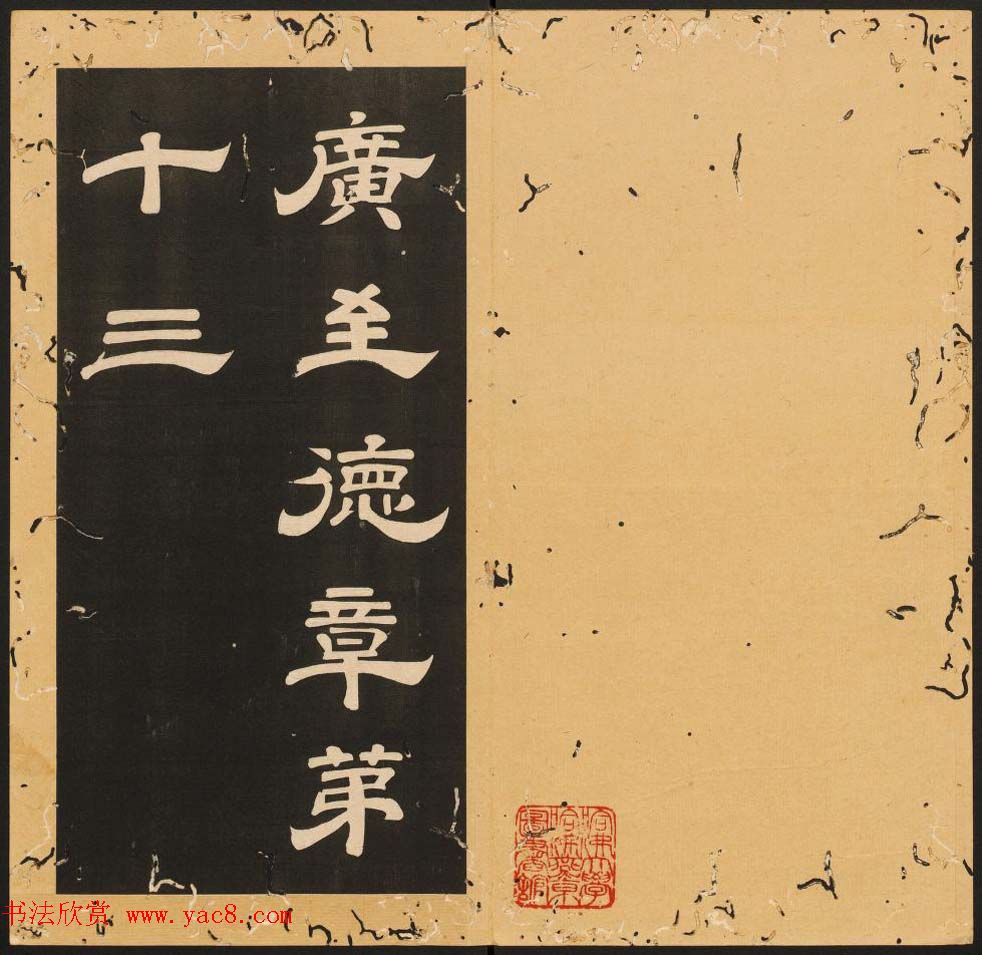 廣至德章苐
十三
书法欣赏 www.yac8.com